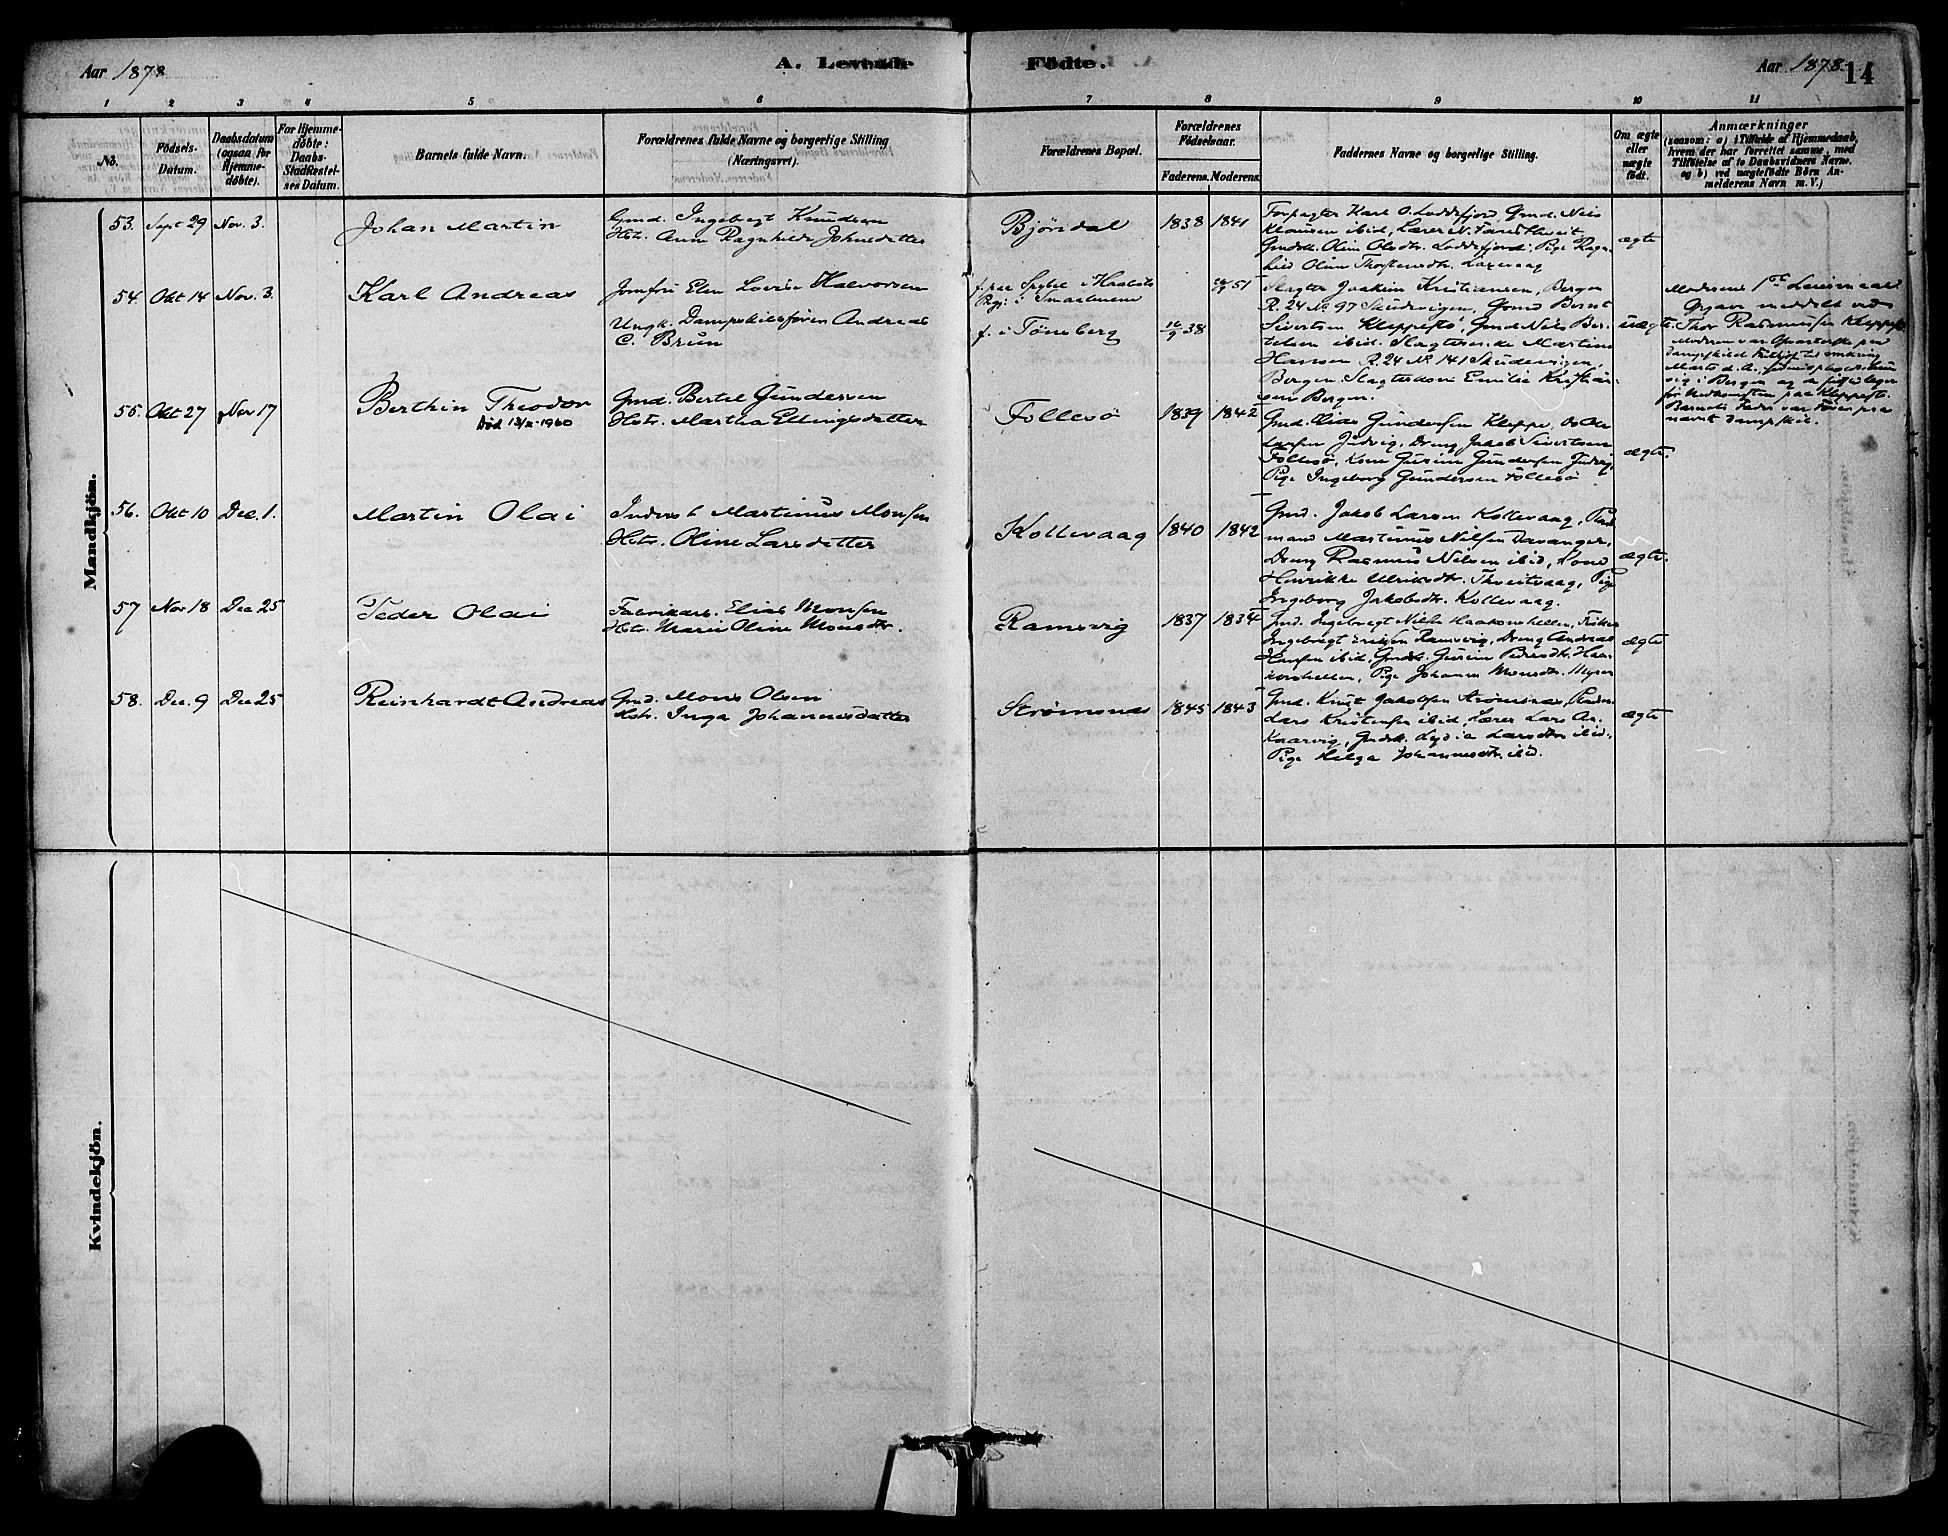 Aar 1878
A. Levende
Födte.
Aar 1878. 14
1 2 3 4 5 6 7 8 9 10 11
No.
Födsels-
Datum.
Daabsdatum
(ogsaa for
Hjemme-
döbte).
For Hjemme-
döbte:
Daabs-
Stadfæstel-
ses Datum.
Barnets fulde Navn.
Forældrenes fulde Navne og borgerlige Stilling
(Næringsvei).
Forældrenes Bopæl.
Forældrenes
Födselsaar.
Faderens. Moderens.
Faddernes Navne og borgerlige Stilling.
Om ægte
eller
uægte
födt.
Anmærkninger
(saasom: a) i Tilfælde af Hjemmedaab,
hvem der har forrettet samme, med
Tilföielse af to Daabsvidners Navne,
og b) ved uægtefödte Börn An-
melderens Navn m. V.)
Mandkjön.
53. Sept 29 Nov. 3.
Johan Martin
Gmd. Ingebregt Knudsen
Hstr. Anna Ragnhilde Johnsdatter
Bjørndal
1838 1841
Forpagter Karl O. Loddefjord, Gmd. Nils
Klausen ibid, Lærer N. Tarldthveit
Gmdsk. Oline Olsdtr. Loddefjord, Pige Ragn-
hild Oline Thorstensdtr. Laxevaag
ægte
54. Okt 14 Nov. 3.
Karl Andreas
Jomfru Elen Lovise Halvorsen
Ungk. Dampskibsfører Andreas
C. Brun
i Smaalenene
f. i Tönsberg
51
38
Slagter Joakim Kristiansen, Bergen
R. 24 No 97 Skudevigen, Gmd Bernt
Sivertsen Kleppestø, Gmd Nils Ber-
telsen ibid. Martine
Hansen R. 24 No 141 Skudevigen,
Bergen. Emilie Kristian-
sen Bergen.
uægte.
Moderens 1ste Leiermaal
Opgave meddelt ved
Thor Rasmussen Kleppestø
Moderen var paa
Dampskibet omkring
Marts d. A.,
sig i Bergen og
for Nedkomsten paa Kleppestø.
Barnets Fader var Fører paa
nævnt Dampskib.
55. Okt 27 Nov 17
Berthin Theodor
Död 13/2-1960
Gmd. Bertel Gundersen
Hstr. Martha Ellingsdatter
Follesö
1839 1842
Gmd. Elias Gundersen Kleppe,
Larsen Judvig, Dreng Jakob Sivertsen
Follesö, Kone Gurine Gundersen Judvig,
Pige Ingeborg Gundersen Follesö
ægte.
56. Okt 10 Dec. 1.
Martin Olai
Inderst Martinus Monsen
Hstr. Oline Larsdatter
Kollevaag
1840 1842
Gmd. Jakob Larsen Kollevaag,
mand Martinus Nilsen Davanger,
Dreng Rasmus Nilsen ibid, Kone
Henrikke Ulriksdtr. Thveitvaag, Pige
Ingeborg Jakobsdtr. Kollevaag.
ægte.
57 Nov 18 Dec 25
Peder Olai
Fabrikarb. Elias Monsen
Hstr. Marie Oline Monsdtr.
Ramsvig
1837 1834
Gmd. Ingebregt Nilsen Haakonshellen,
Ingebregt Eriksen Ramsvig, Dreng Andreas
Hansen ibid, Gmdsk. Gurine Pedersdtr. Haa-
konshellen, Pige Johanne Monsdtr. Myren
ægte
58. Dec. 9 Dec 25
Reinhardt Andreas
Gmd. Mons Olsen
Hstr. Inga Johannesdatter
Strömsnæs
1845 1843
Gmd. Knut Jakobsen Strömsnæs,
Lars Kristensen ibid, Lærer Lars An.
Kaarvig, Gmdsk. Lydia Larsdtr ibid.,
Pige Helga Johannesdtr. ibid.
ægte
Kvindekjön.